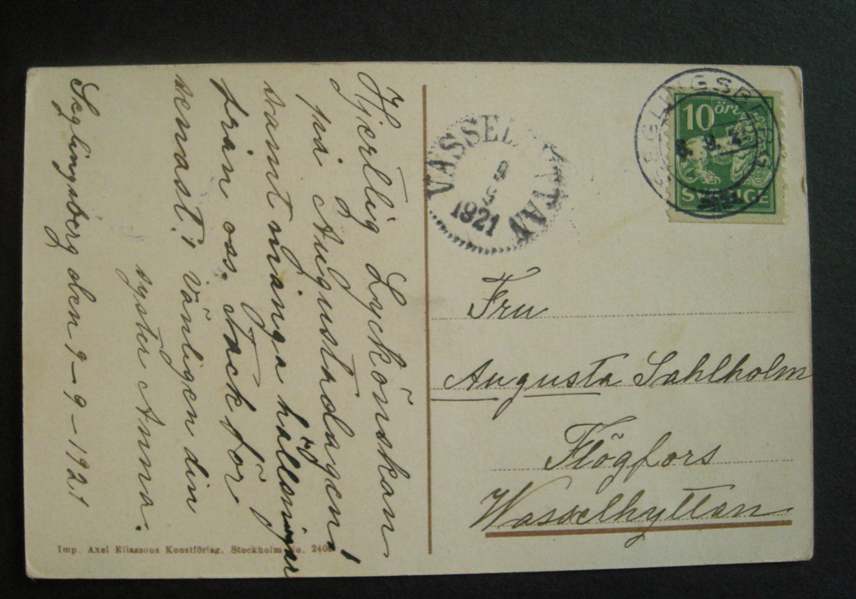 Hjertlig Lyckönskan
på Augustadagen!
samt många hälsningar
från oss. Tack för
senast! vänligen din
syster Anna.
Seglingsberg den 9-9-1921
VASSEL
1921
10 ÖRE
SVERIGE
Fru
Augusta Sahlholm
Flögfors
Wasselhyttan
Imp. Axel Eliassons Konstförlag, Stockholm